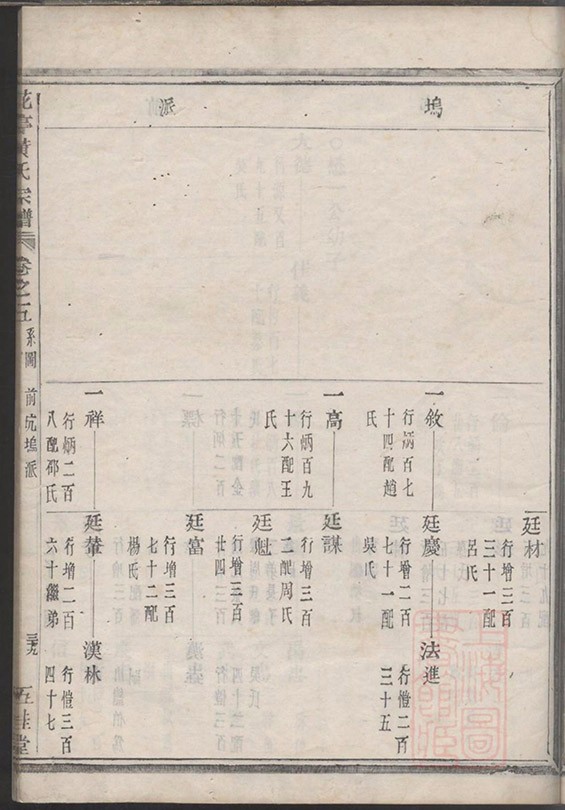 塢
派
廷材
行增三百
三十一配
呂氏
一敘
行炳百七
十四配趙
氏
廷慶
行增二百
七十一配
吳氏
法進
行愷二百
三十五
一高
行炳百九
十六配王
氏
廷謀
行增三百
二配周氏
廷魁
行增三百
廿四
廷富
行增三百
七十二配
楊氏
一祥
行炳二百
八配邵氏
廷輦
行增二百
六十繼弟
漢林
行愷三百
四十七
花亭黄氏宗譜
卷之五
系圖
前坑塢派
五桂堂